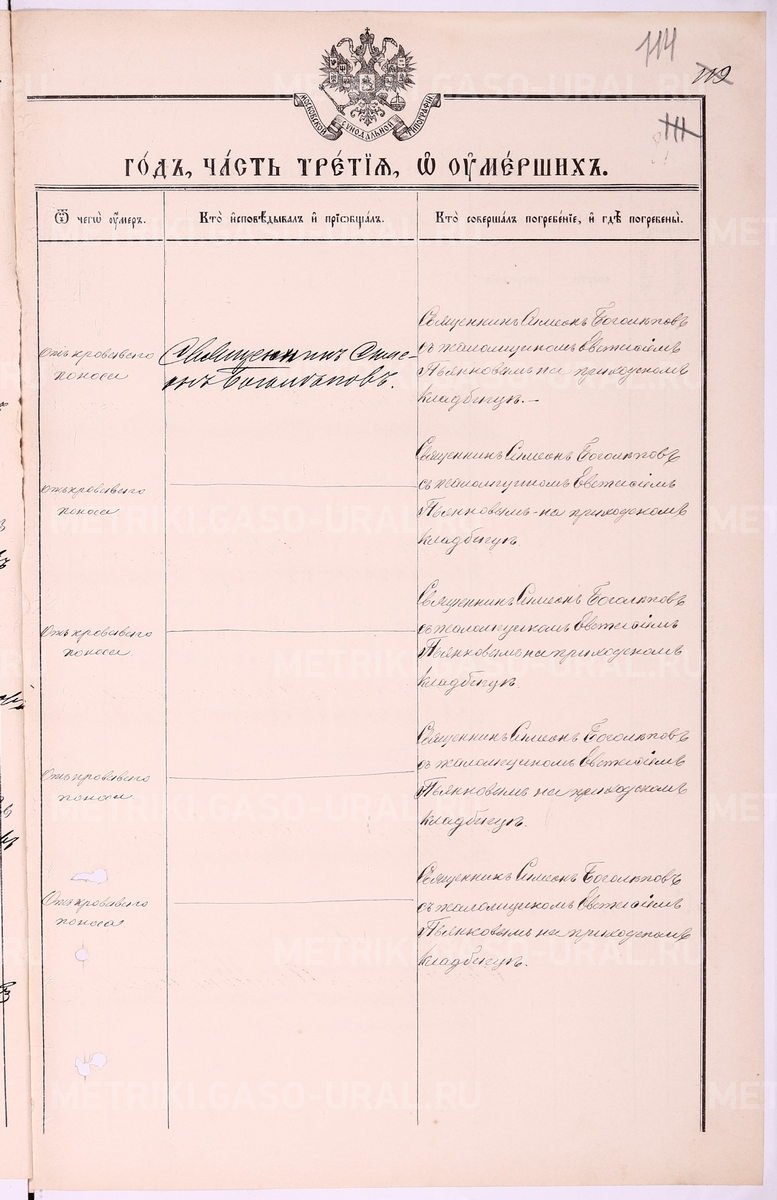 114
112
111
МОСКОВСКОЙ СѴНОДАЛЬНОЙ ТИПОГРАФІИ
ГО́ДЪ, ЧА́СТЬ ТРЕ́ТІЯ, Ѽ ОУ҆МЕ́РШИХЪ.
Ѿ чегѡ̀ оу҆́меръ.
Кто̀ и҆сповѣ́дывалъ и҆ прїѡбща́лъ.
Кто̀ соверша́лъ погребе́нїе, и҆ гдѣ̀ погребены̀.
Отъ кроваваго
поноса
Священникъ Симе-
онъ Боголѣповъ.
Священникъ Симеонъ Боголѣповъ
съ псаломщикомъ Евгеніемъ
Пьянковымъ на приходскомъ
кладбищѣ.—
Отъ кроваваго
поноса
Священникъ Симеонъ Боголѣповъ
съ псаломщикомъ Евгеніемъ
Пьянковымъ - на приходскомъ
кладбищѣ
Отъ кроваваго
поноса.
Священникъ Симеонъ Боголѣповъ
съ псаломщикомъ Евгеніемъ
Пьянковымъ на приходскомъ
кладбищѣ.
Отъ кроваваго
поноса
Священникъ Симеонъ Боголѣповъ
съ псаломщикомъ Евгеніемъ
Пьянковымъ на приходскомъ
кладбищѣ.
Отъ кроваваго
поноса
Священникъ Симеонъ Боголѣповъ
съ псаломщикомъ Евгеніемъ
Пьянковымъ на приходскомъ
кладбищѣ.
METRIKI.GASO-URAL.RU